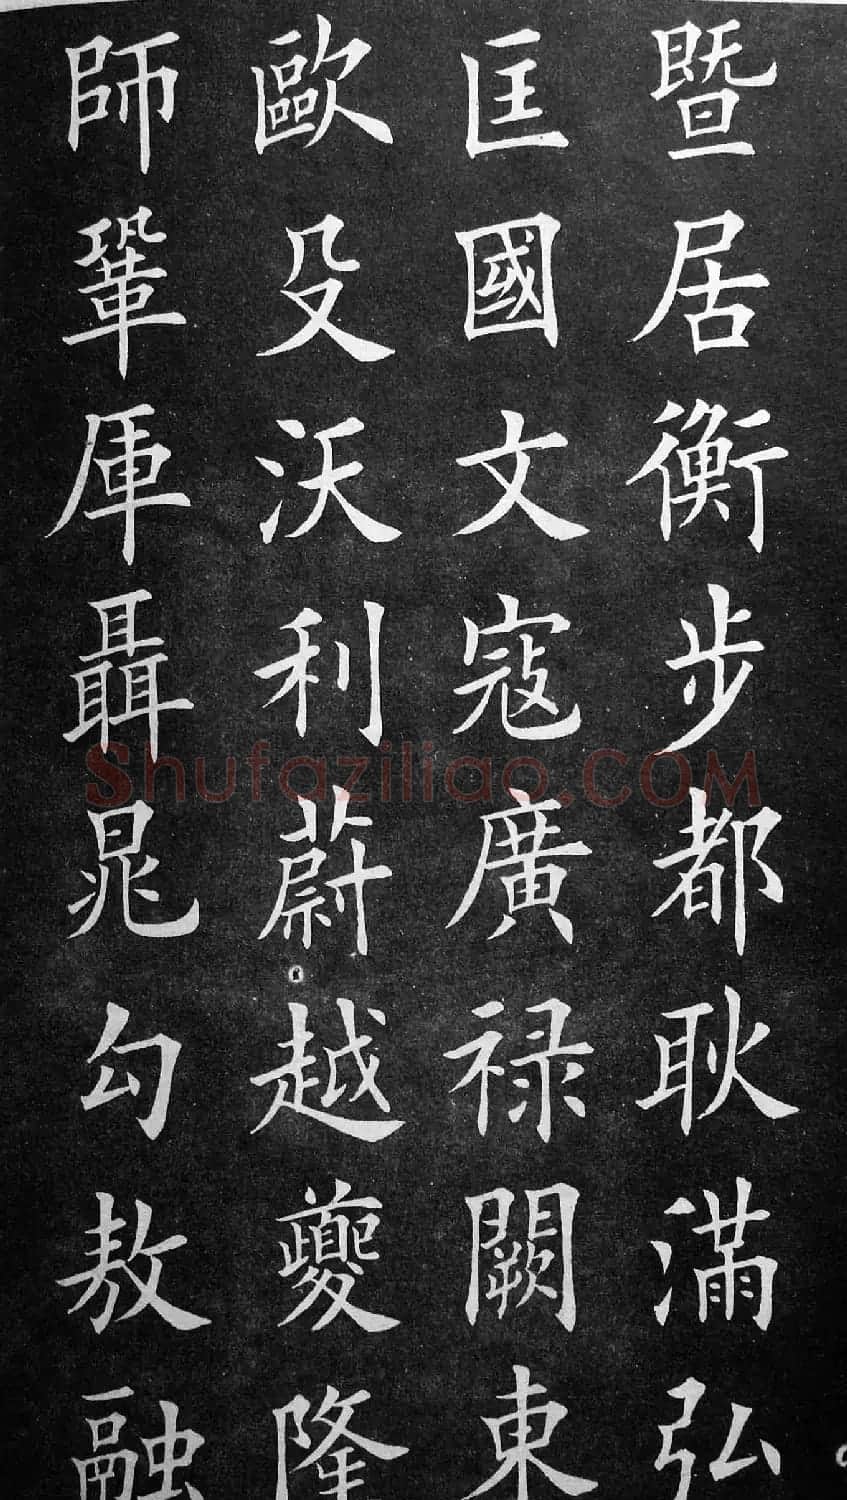 暨居衡步都耿滿弘
匡國文寇廣禄闕東
歐殳沃利蔚越夔隆
師鞏厙聶晁勾敖融
Shufaziliao.COM